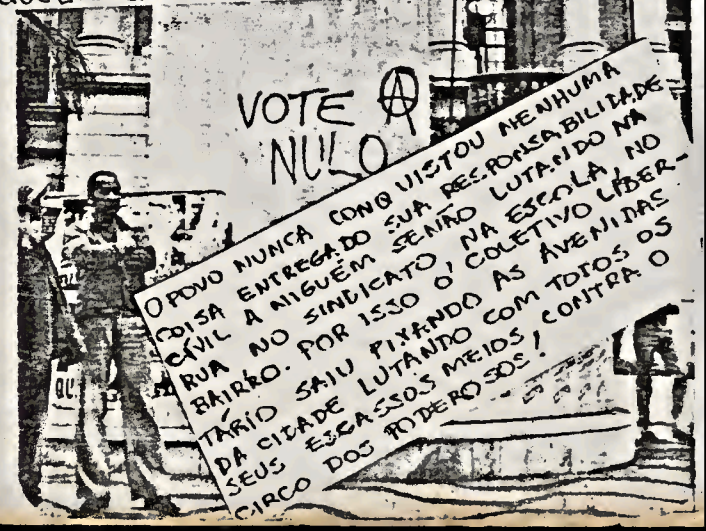 VOTE Ⓐ
NULO
O POVO NUNCA CONQUISTOU NENHUMA
COISA ENTREGADO SUA RESPONSABILIDADE
CÍVIL A NIGUÉM SENÃO LUTANDO NA
RUA NO SINDICATO, NA ESCOLA, NO
BAIRRO. POR ISSO O COLETIVO LIBER-
TÁRIO SAIU PIXANDO AS AVENIDAS
DA CIDADE LUTANDO COM TOTOS OS
SEUS ESCASSOS MEIOS, CONTRA O
CIRCO DOS PODEROSOS!